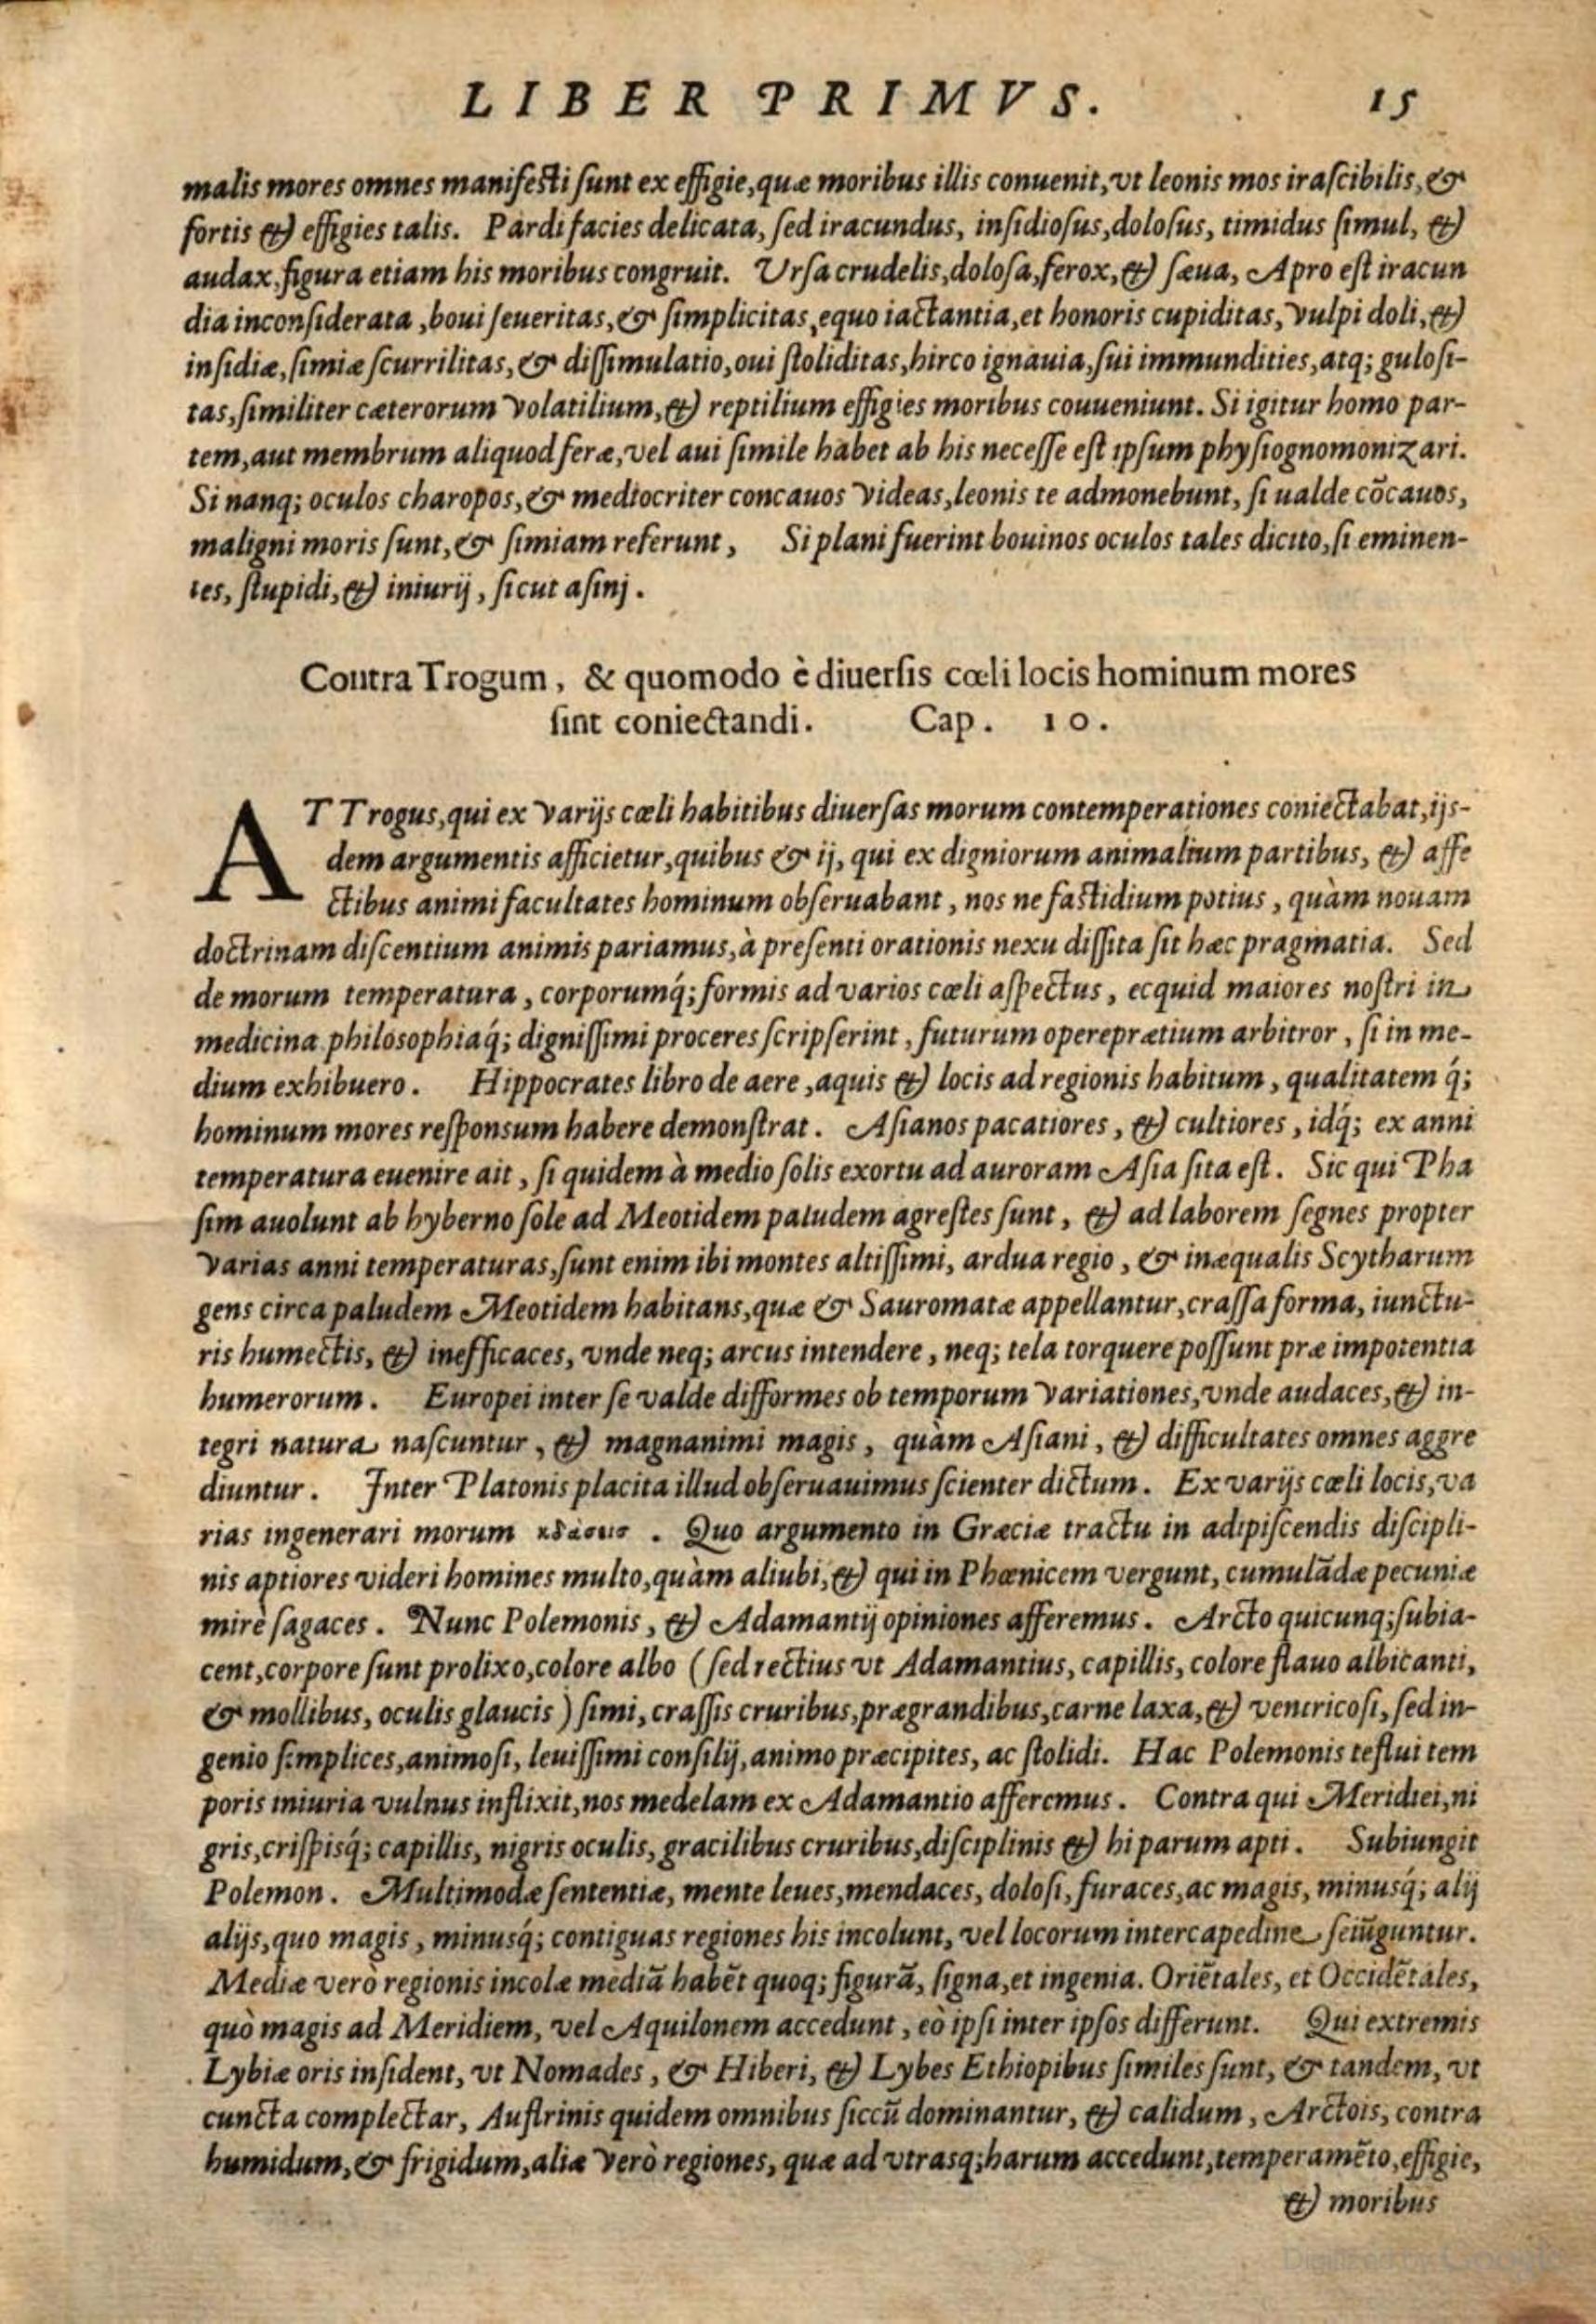 LIBER PRIMVS. 15
malis mores omnes manifesti sunt ex effigie, quæ moribus illis conuenit, vt leonis mos irascibilis, &
fortis & effigies talis. Pardi facies delicata, sed iracundus, insidiosus, dolosus, timidus simul, &
audax, figura etiam his moribus congruit. Vrsa crudelis, dolosa, ferox, & sæua, Apro est iracun
dia inconsiderata, boui seueritas, & simplicitas, equo iactantia, et honoris cupiditas, vulpi doli, &
insidiæ, simiæ scurrilitas, & dissimulatio, oui stoliditas, hirco ignauia, sui immundities, atq; gulosi-
tas, similiter cæterorum volatilium, & reptilium effigies moribus couueniunt. Si igitur homo par-
tem, aut membrum aliquod feræ, vel aui simile habet ab his necesse est ipsum physiognomonizari.
Si nanq; oculos charopos, & mediocriter concauos videas, leonis te admonebunt, si ualde cõcauos,
maligni moris sunt, & simiam referunt, Si plani fuerint bouinos oculos tales dicito, si eminen-
tes, stupidi, & iniurij, sicut asinj.
Contra Trogum, & quomodo è diuersis cœli locis hominum mores
sint coniectandi. Cap. 10.
AT Trogus, qui ex varijs cœli habitibus diuersas morum contemperationes coniectabat, ijs-
dem argumentis afficietur, quibus & ij, qui ex digniorum animalium partibus, & affe
ctibus animi facultates hominum obseruabant, nos ne fastidium potius, quàm nouam
doctrinam discentium animis pariamus, à presenti orationis nexu dissita sit hæc pragmatia. Sed
de morum temperatura, corporumq́; formis ad varios cœli aspectus, ecquid maiores nostri in
medicina philosophiaq́; dignissimi proceres scripserint, futurum opereprætium arbitror, si in me-
dium exhibuero. Hippocrates libro de aere, aquis & locis ad regionis habitum, qualitatem q́;
hominum mores responsum habere demonstrat. Asianos pacatiores, & cultiores, idq́; ex anni
temperatura euenire ait, si quidem à medio solis exortu ad auroram Asia sita est. Sic qui Pha
sim auolunt ab hyberno sole ad Meotidem paludem agrestes sunt, & ad laborem segnes propter
varias anni temperaturas, sunt enim ibi montes altissimi, ardua regio, & inæqualis Scytharum
gens circa paludem Meotidem habitans, quæ & Sauromatæ appellantur, crassa forma, iunctu-
ris humectis, & inefficaces, vnde neq; arcus intendere, neq; tela torquere possunt præ impotentia
humerorum. Europei inter se valde difformes ob temporum variationes, vnde audaces, & in-
tegri natura nascuntur, & magnanimi magis, quàm Asiani, & difficultates omnes aggre
diuntur. Inter Platonis placita illud obseruauimus scienter dictum. Ex varijs cœli locis, va
rias ingenerari morum . Quo argumento in Græciæ tractu in adipiscendis discipli-
nis aptiores videri homines multo, quàm aliubi, & qui in Phœnicem vergunt, cumulãdæ pecuniæ
mirè sagaces. Nunc Polemonis, & Adamantij opiniones afferemus. Arcto quicunq; subia-
cent, corpore sunt prolixo, colore albo (sed rectius vt Adamantius, capillis, colore flauo albicanti,
& mollibus, oculis glaucis) simi, crassis cruribus, prægrandibus, carne laxa, & ventricosi, sed in-
genio simplices, animosi, leuissimi consilij, animo præcipites, ac stolidi. Hac Polemonis testui tem
poris iniuria vulnus inflixit, nos medelam ex Adamantio afferemus. Contra qui Meridiei, ni
gris, crispisq́; capillis, nigris oculis, gracilibus cruribus, disciplinis & hi parum apti. Subiungit
Polemon. Multimodæ sententiæ, mente leues, mendaces, dolosi, furaces, ac magis, minusq́; alij
alijs, quo magis, minusq́; contiguas regiones his incolunt, vel locorum intercapedine seiũguntur.
Mediæ verò regionis incolæ mediã habẽt quoq; figurã, signa, et ingenia. Oriẽtales, et Occidẽtales,
quò magis ad Meridiem, vel Aquilonem accedunt, eò ipsi inter ipsos differunt. Qui extremis
Lybiæ oris insident, vt Nomades, & Hiberi, & Lybes Ethiopibus similes sunt, & tandem, vt
cuncta complectar, Austrinis quidem omnibus siccũ dominantur, & calidum, Arctois, contra
humidum, & frigidum, aliæ verò regiones, quæ ad vtrasq; harum accedunt, temperamẽto, effigie,
& moribus
Digitized by Google